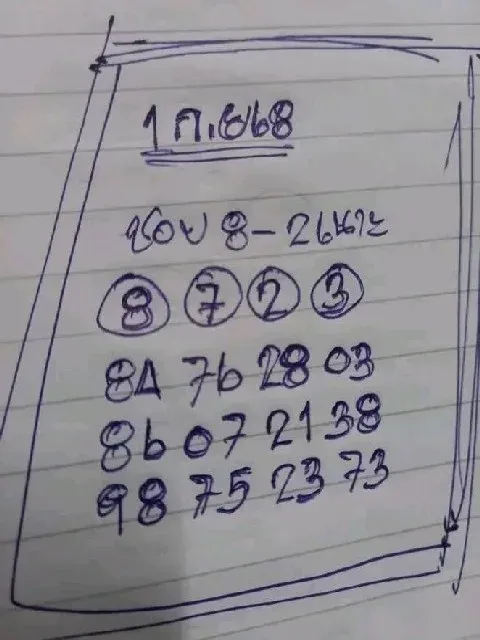 1 ก.ย68
ชอบ 8-2นะ
8 7 2 3
84 76 28 03
86 07 21 38
98 75 23 73